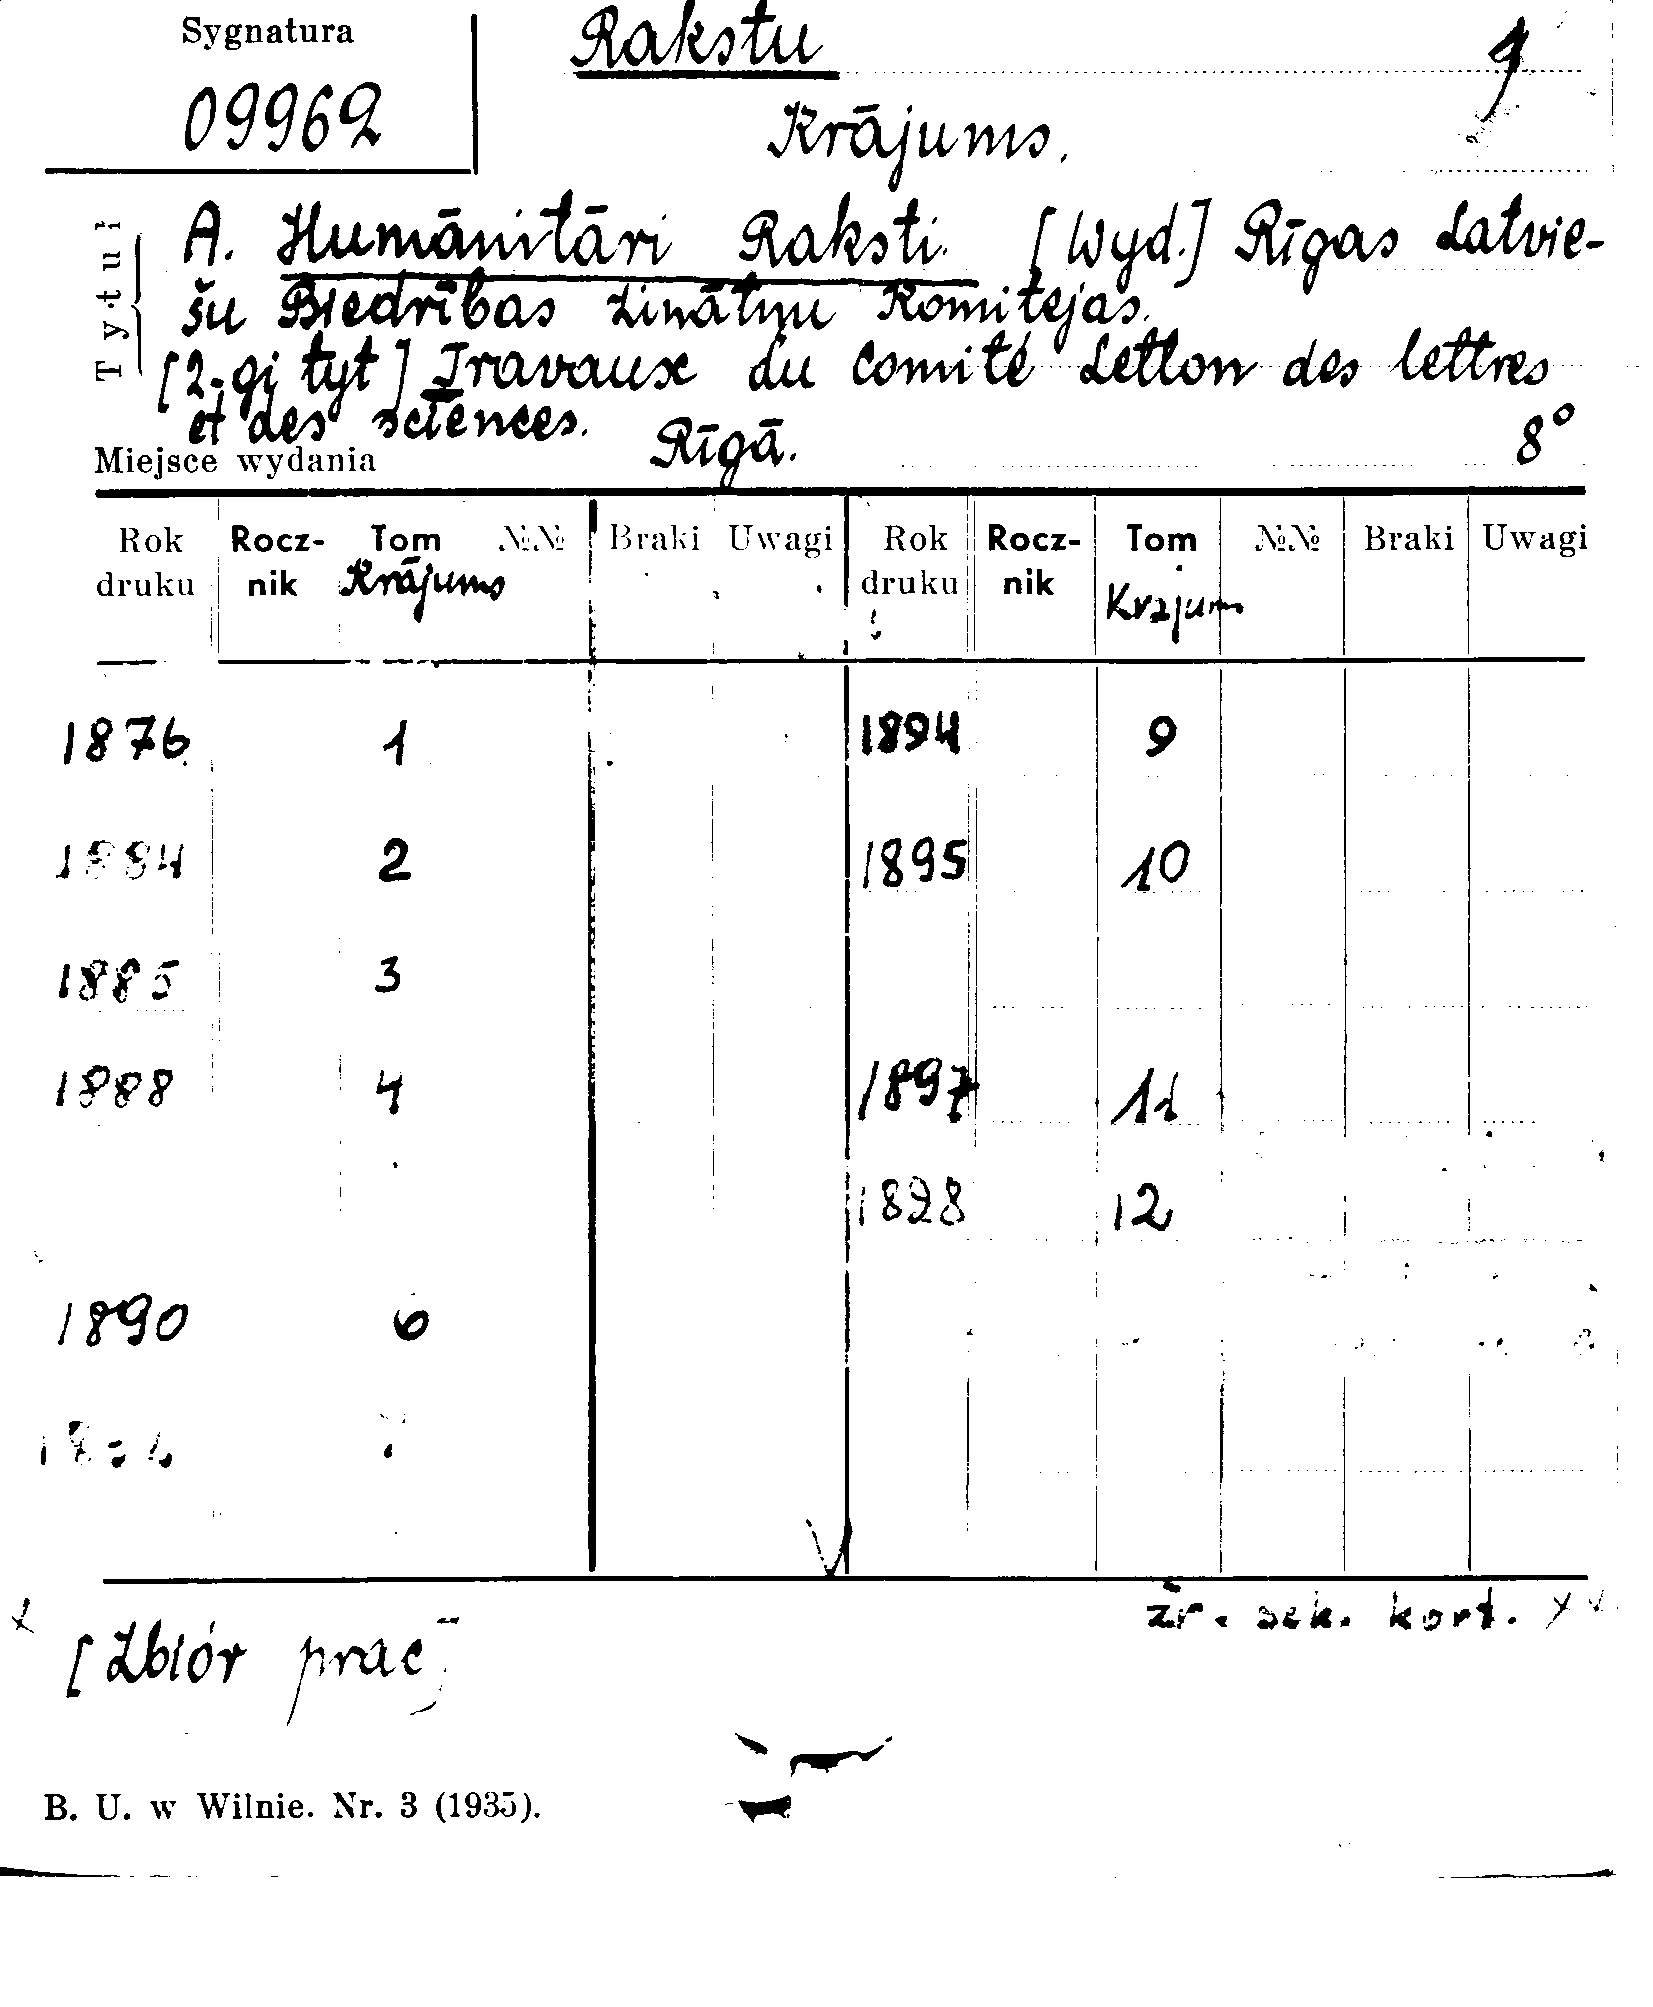 Sygnatura
09962
Rakstu
Krājums.
Tytuł
A. Humānitāri Raksti. [Wyd.] Rīgas Latvie-
šu Biedrības Zinātņu Komitejas.
[2-gi tyt] Travaux du Comité Letton des lettres
et des sciences.
Miejsce wydania Rīgā. 8°
Rok druku Rocz-nik Tom Krājums №№ Braki Uwagi Rok druku Rocz-nik Tom Krajums №№ Braki Uwagi
1876 1 1894 9
1884 2 1895 10
1885 3
1888 4 1897 11
1898 12
1890 6
żr. sek. kort.
[Zbiór prac]
B. U. w Wilnie. Nr. 3 (1935).